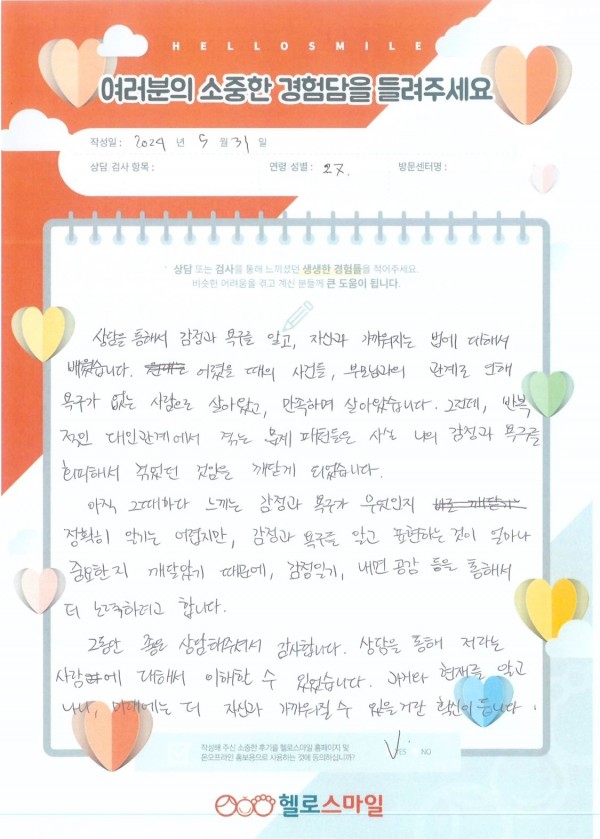 HELLOSMILE
여러분의 소중한 경험담을 들려주세요
작성일 : 2024 년 5 월 31 일
상담 검사 항목 : 연령 성별 : 27. 방문센터명 :
상담 또는 검사를 통해 느끼셨던 생생한 경험들을 적어주세요.
비슷한 어려움을 겪고 계신 분들께 큰 도움이 됩니다.
상담을 통해서 감정과 욕구를 알고, 자신과 가까워지는 법에 대해서
배웠습니다. 어렸을 때의 사건들, 부모님과의 관계로 인해
욕구가 없는 사람으로 살아왔고, 만족하며 살아왔습니다. 그런데, 반복
적인 대인관계에서 겪는 문제 패턴들은 사실 나의 감정과 욕구를
회피해서 겪었던 것임을 깨닫게 되었습니다.
아직 그때마다 느끼는 감정과 욕구가 무엇인지 바로 깨닫기
정확히 알기는 어렵지만, 감정과 욕구를 알고 표현하는 것이 얼마나
중요한지 깨달았기 때문에, 감정일기, 내면 공감 등을 통해서
더 노력하려고 합니다.
그동안 좋은 상담해주셔서 감사합니다. 상담을 통해 저라는
사람에 대해서 이해할 수 있었습니다. 과거와 현재를 알고
나니, 미래에는 더 자신과 가까워질 수 있을거란 확신이 듭니다.
작성해 주신 소중한 후기를 헬로스마일 홈페이지 및
온오프라인 홍보용으로 사용하는 것에 동의하십니까?
YES NO
헬로스마일